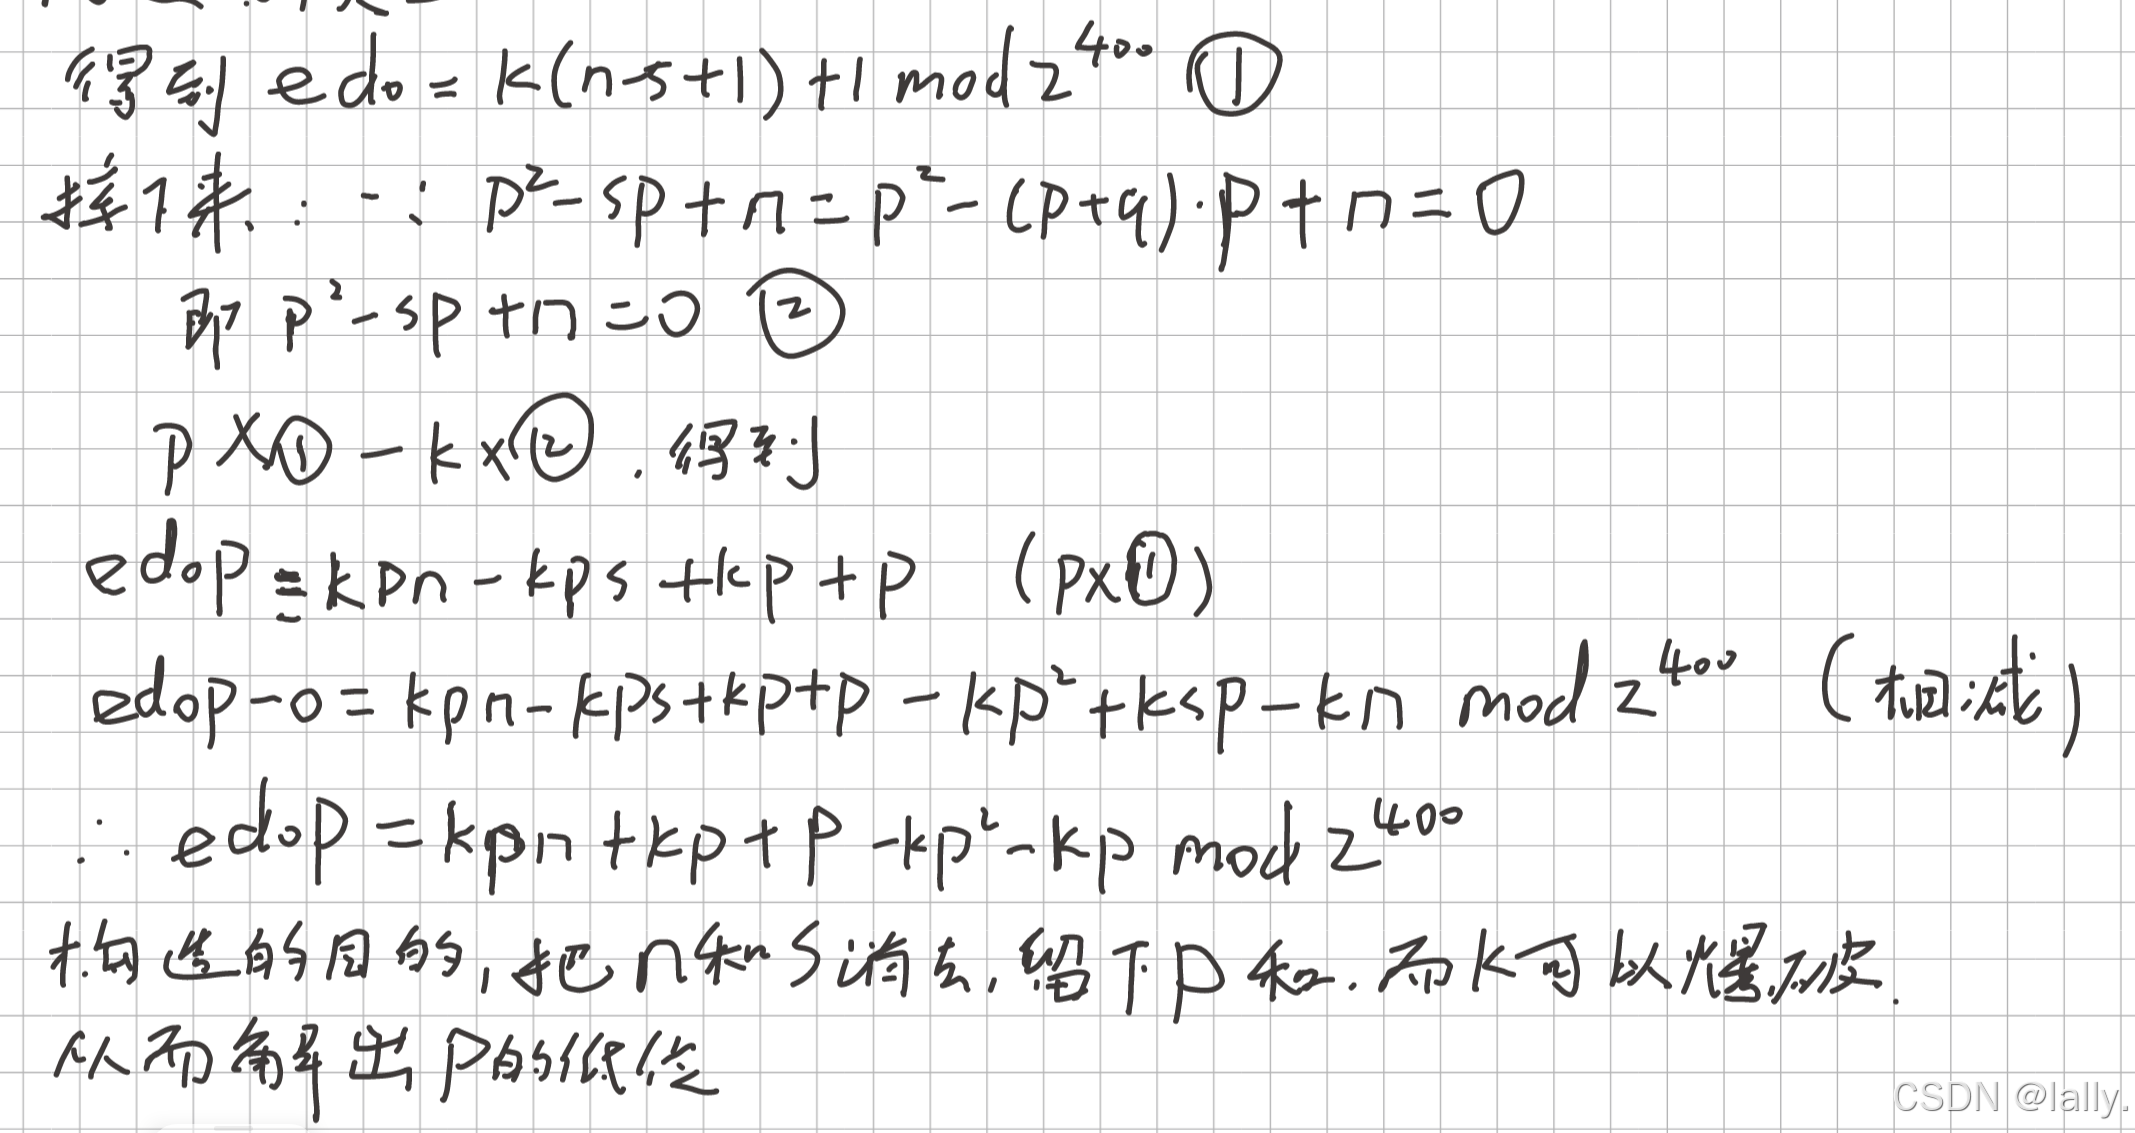 得到 ed₀ = k(n-s+1)+1 mod 2⁴⁰⁰ ①
接下来: ∵ p²-sp+n=p²-(p+q)·p+n=0
即 p²-sp+n=0 ②
p×①-k×②.得到
ed₀p≡kpn-kps+kp+p (p×①)
ed₀p-0=kpn-kps+kp+p-kp²+ksp-kn mod 2⁴⁰⁰ (相减)
∴ ed₀p=kpn+kp+p-kp²-kp mod 2⁴⁰⁰
构造的目的,把n和s消去,留下p和.而k可以爆破.
从而解出p的低位
CSDN @lally.